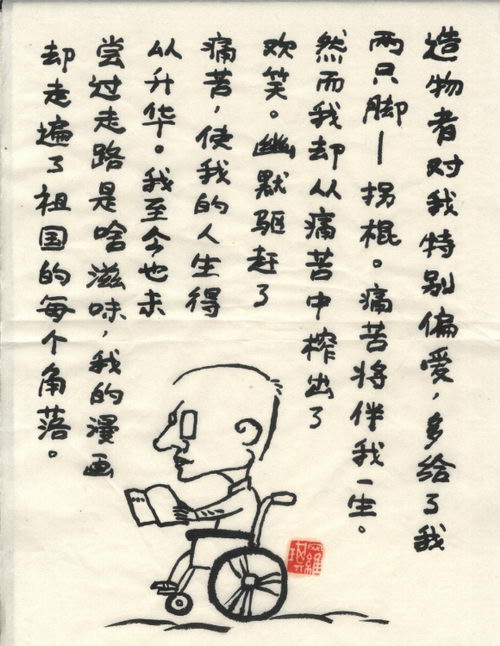 造物者对我特别偏爱，多给了我
两只脚—拐棍。痛苦将伴我一生。
然而我却从痛苦中榨出了
欢笑。幽默驱赶了
痛苦，使我的人生得
从升华。我至今也未
尝过走路是啥滋味，我的漫画
却走遍了祖国的每个角落。